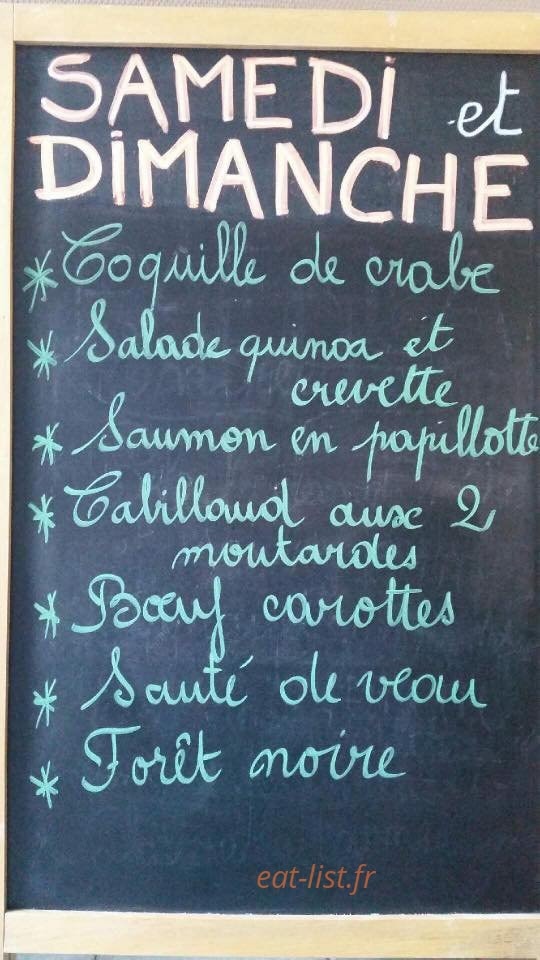 SAMEDI et
DIMANCHE
* Coquille de crabe
* Salade quinoa et
crevette
* Saumon en papillotte
* Cabillaud aux 2
moutardes
* Bœuf carottes
* Sauté de veau
* Forêt noire
eat-list.fr